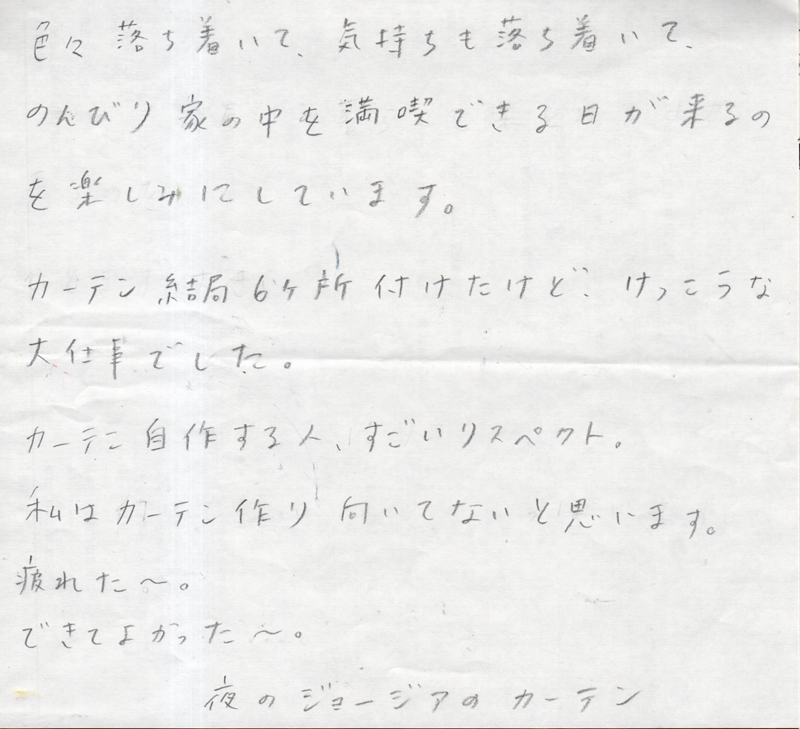 色々落ち着いて、気持ちも落ち着いて、
のんびり家の中を満喫できる日が来るの
を楽しみにしています。
カーテン結局6ケ所付けたけど、けっこうな
大仕事でした。
カーテン自作する人、すごいリスペクト。
私はカーテン作り向いてないと思います。
疲れた～。
できてよかった～。
夜のジョージアのカーテン